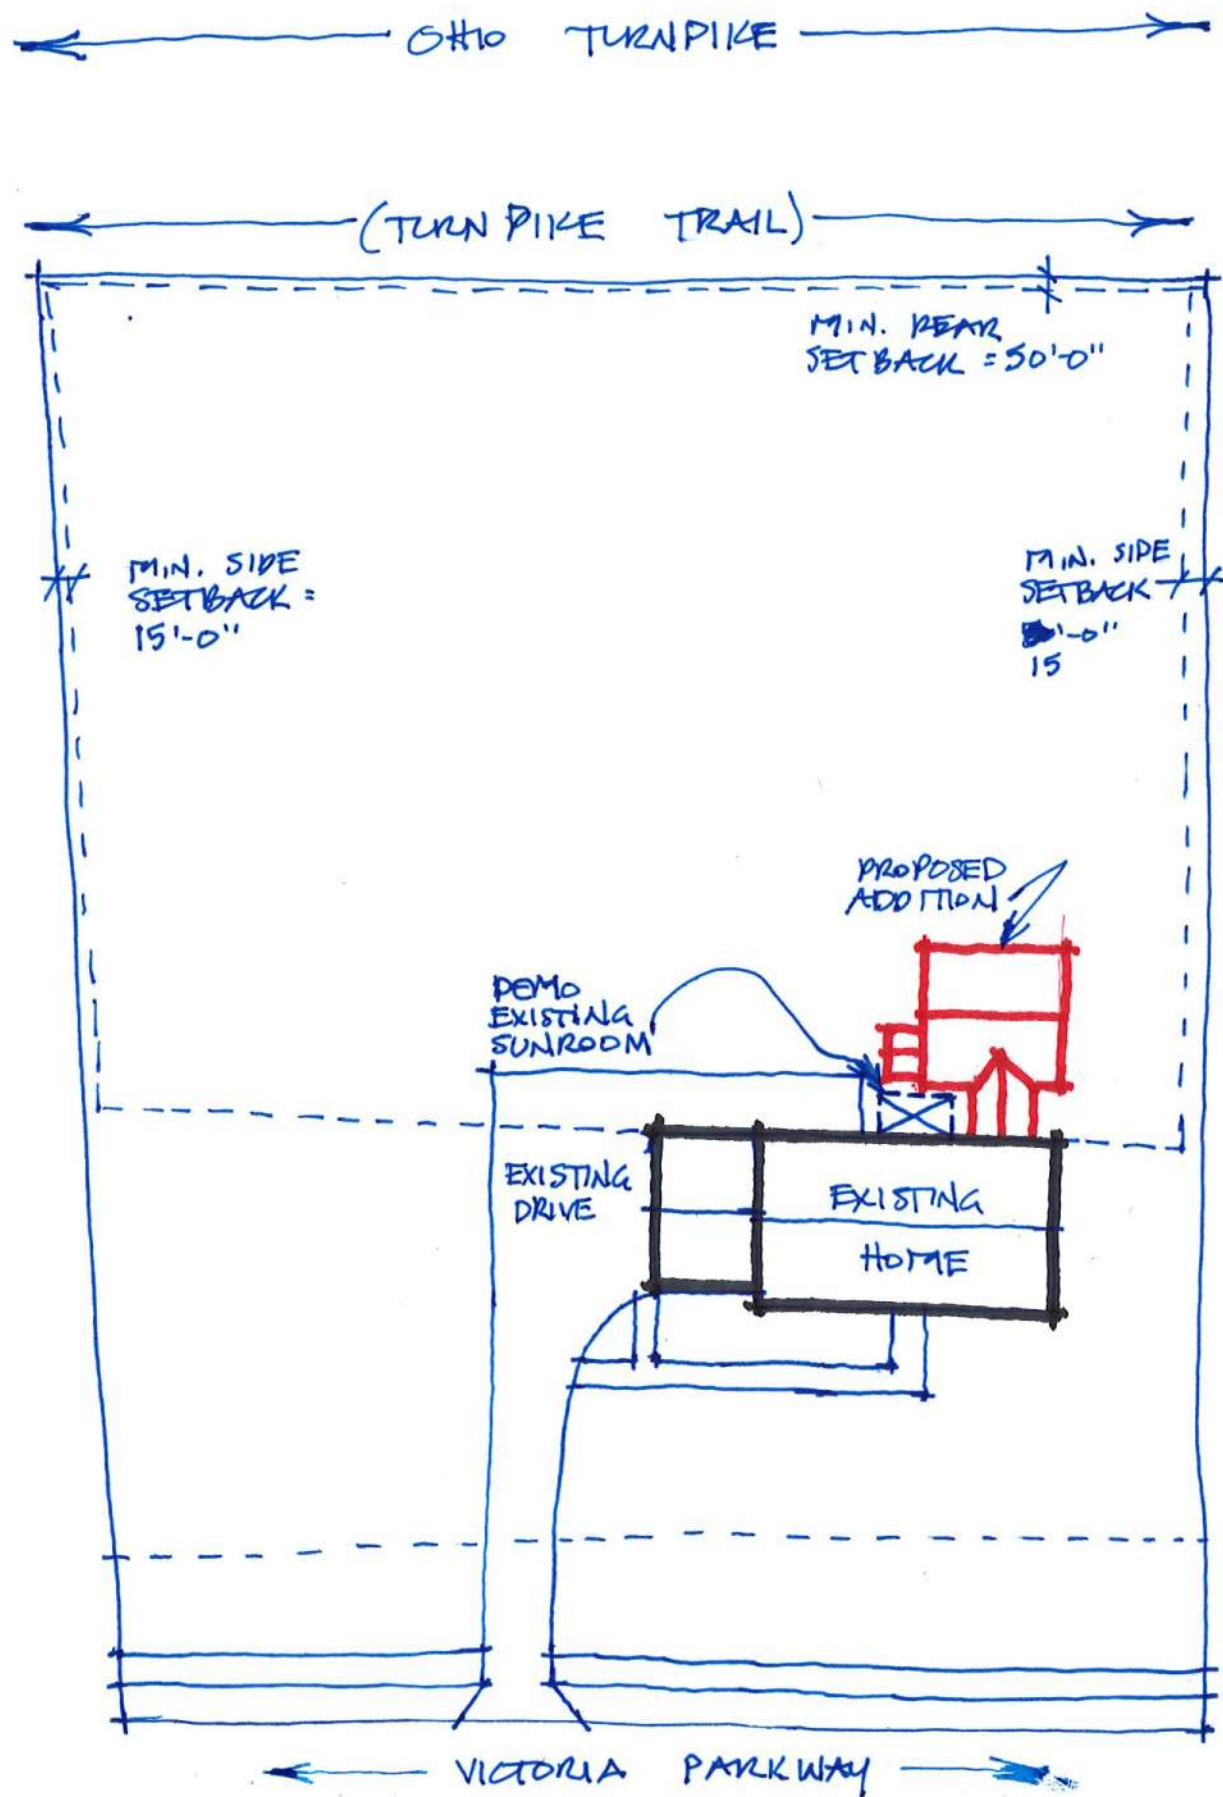 OHIO TURNPIKE
(TURNPIKE TRAIL)
MIN. REAR
SETBACK = 50'-0"
MIN. SIDE
SETBACK =
15'-0"
MIN. SIDE
SETBACK
'-0"
15
PROPOSED
ADDITION
DEMO
EXISTING
SUNROOM
EXISTING
DRIVE
EXISTING
HOME
VICTORIA PARKWAY